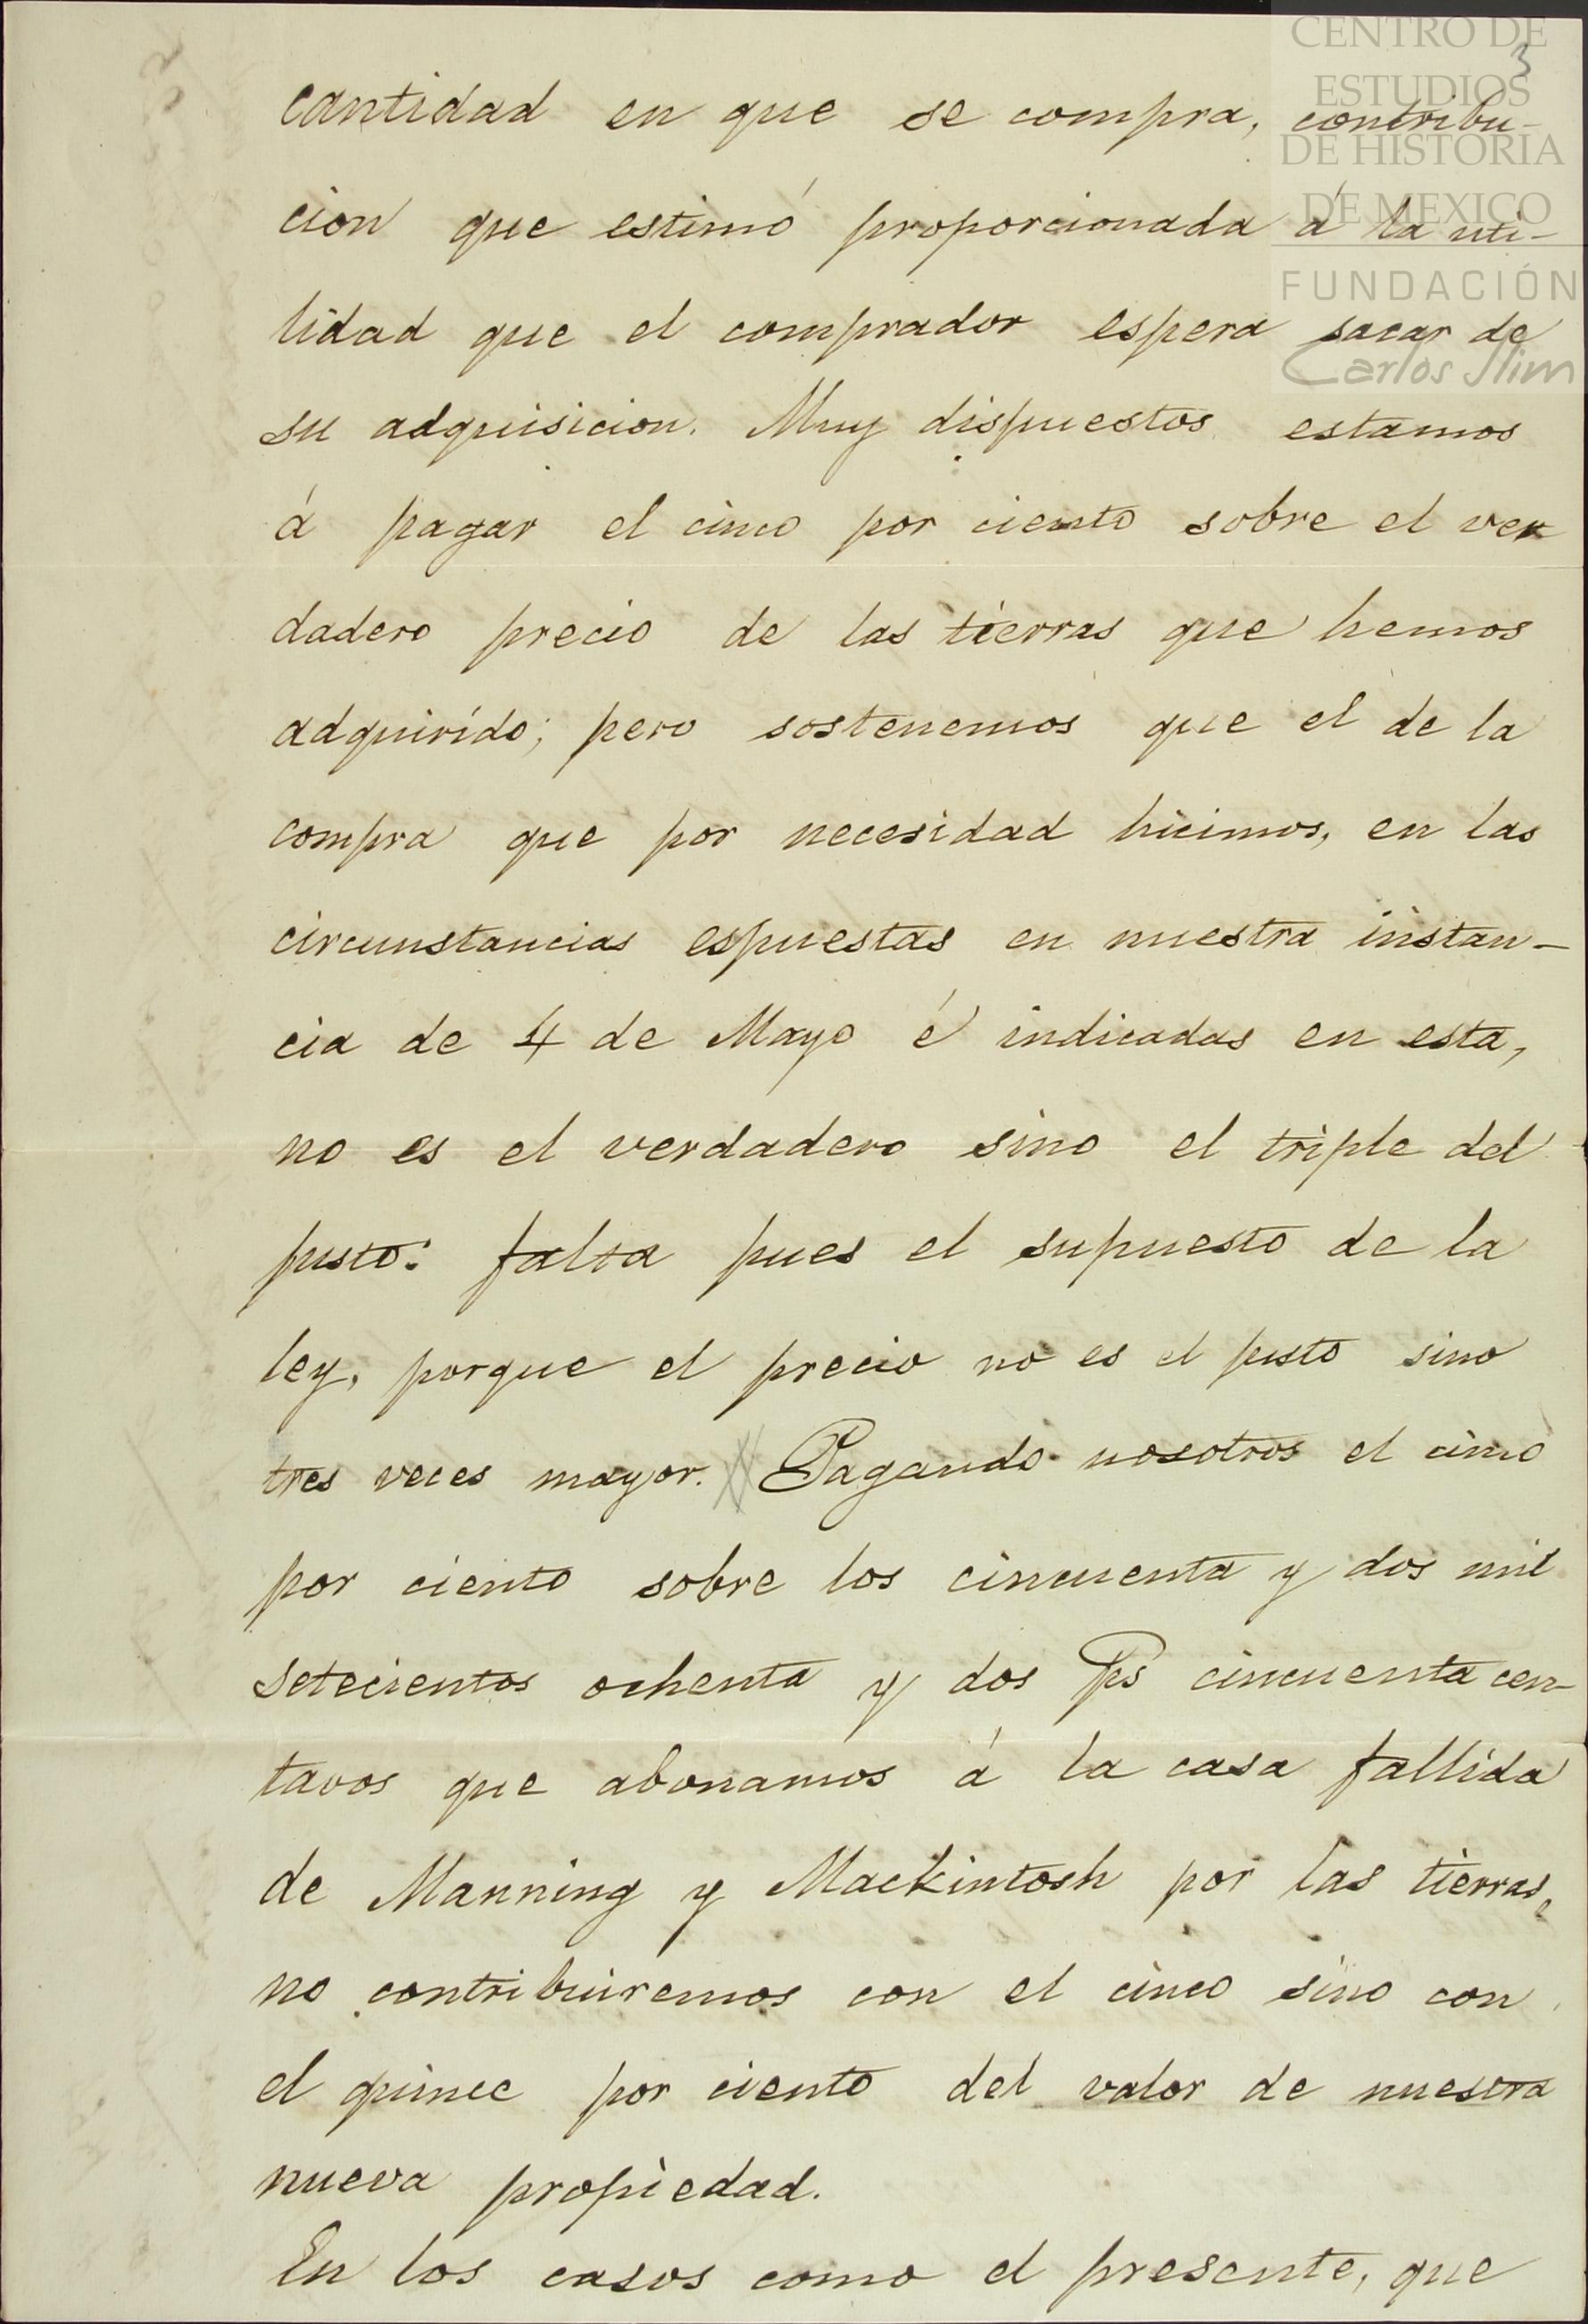 CENTRO DE
ESTUDIOS
DE HISTORIA
DE MEXICO
FUNDACIÓN
Carlos Slim
3
cantidad en que se compra, contribu-
cion que estimó proporcionada á la uti-
lidad que el comprador espera sacar de
su adquisicion. Muy dispuestos estamos
á pagar el cinco por ciento sobre el ver
dadero precio de las tierras que hemos
adquirido; pero sostenemos que el de la
compra que por necesidad hicimos, en las
circunstancias espuestas en nuestra instan-
cia de 4 de Mayo é indicadas en esta,
no es el verdadero sino el triple del
justo: falta pues el supuesto de la
ley, porque el precio no es el justo sino
tres veces mayor. Pagando nosotros el cinco
por ciento sobre los cincuenta y dos mil
setecientos ochenta y dos ps cincuenta cen-
tavos que abonamos á la casa fallida
de Manning y Mackintosh por las tierras,
no contribuiremos con el cinco sino con
el quince por ciento del valor de nuestra
nueva propiedad.
En los casos como el presente, que